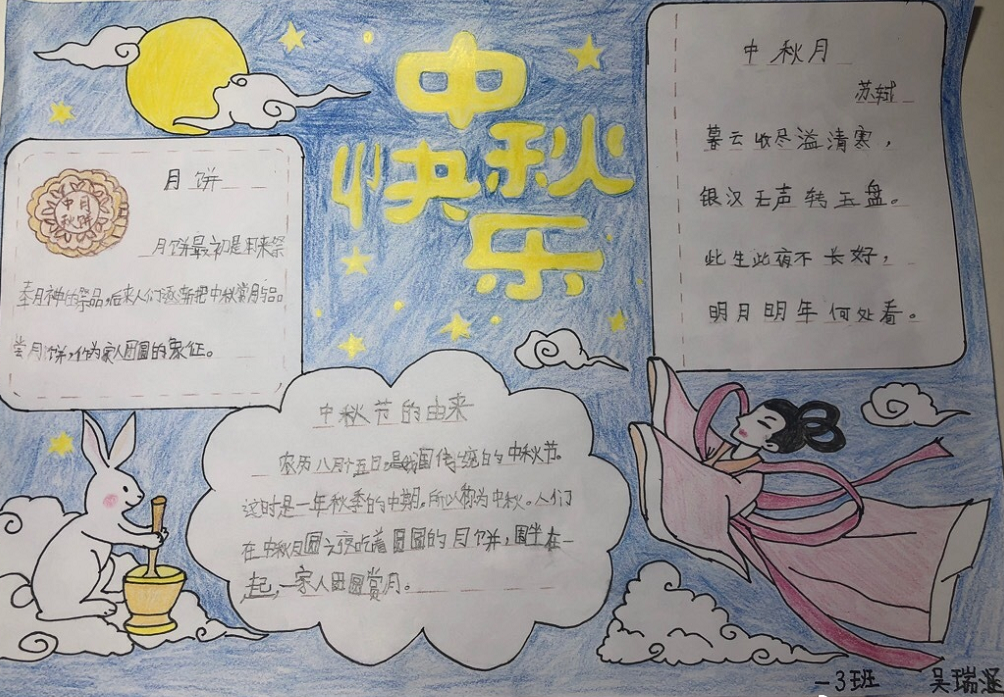 中秋
快乐
月饼
中月
秋饼
月饼最初是用来祭
奉月神的祭品,后来人们逐渐把中秋赏月与品
尝月饼,作为家人团圆的象征。
中秋月
苏轼
暮云收尽溢清寒,
银汉无声转玉盘。
此生此夜不长好,
明月明年何处看。
中秋节的由来
农历八月十五日,是我国传统的中秋节。
这时是一年秋季的中期,所以称为中秋。人们
在中秋月圆之夜吃着圆圆的月饼,围坐在一
起,一家人团圆赏月。
一3班 吴瑞泽